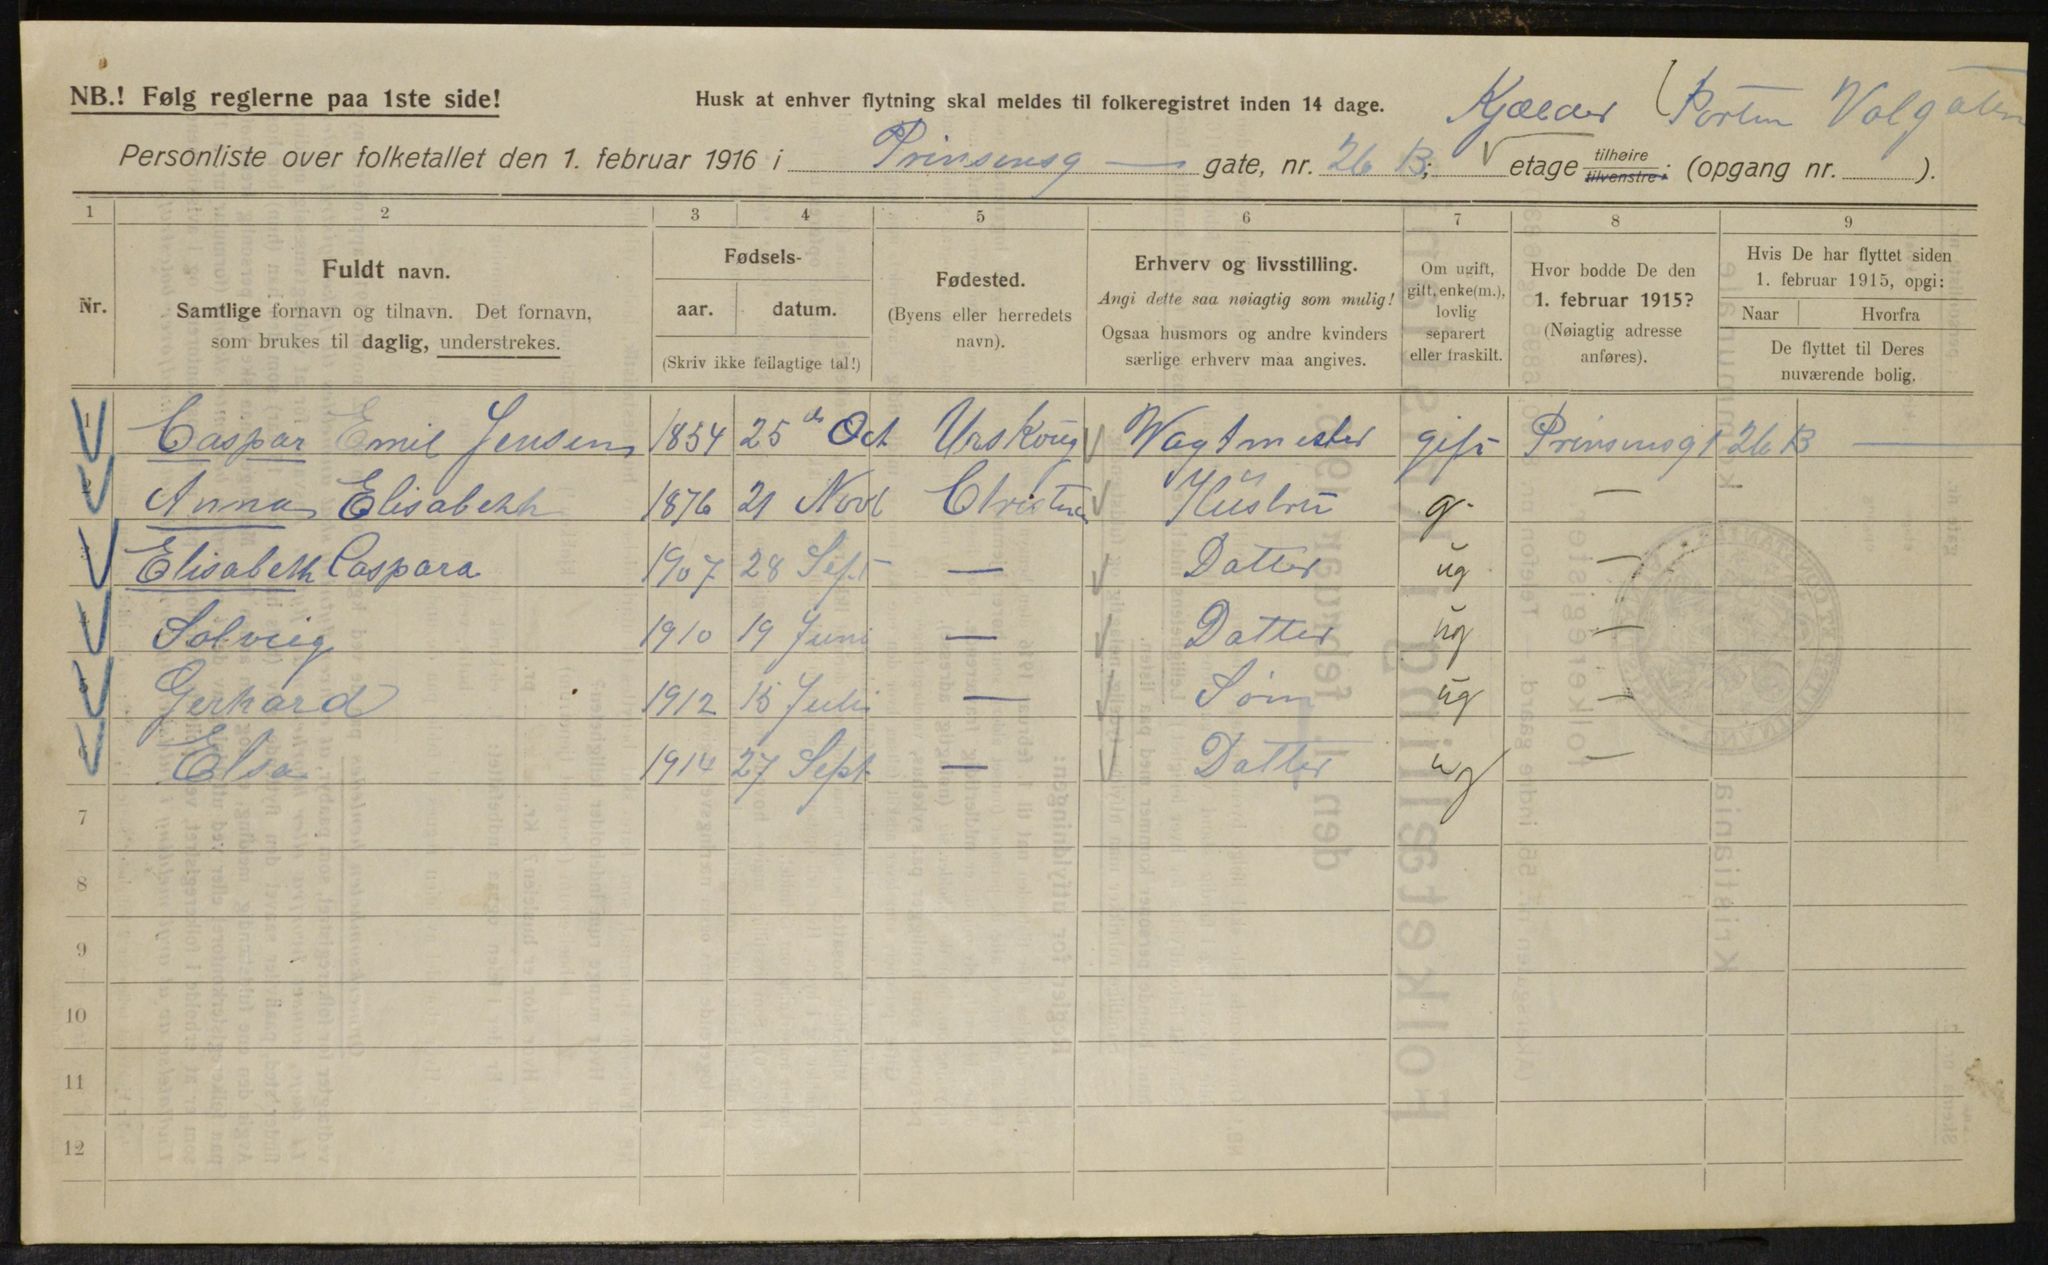 NB.! Følg reglerne paa 1ste side!
Husk at enhver flytning skal meldes til folkeregistret inden 14 dage.
Kjælder Porten Volgaten
Personliste over folketallet den 1. februar 1916 i Prinsensg — gate, nr. 26 B; etage tilhøire tilvenstre; (opgang nr. ).
1 2 3 4 5 6 7 8 9
Nr.
Fuldt navn.
Samtlige fornavn og tilnavn. Det fornavn,
som brukes til daglig, understrekes.
Fødsels-
aar. datum.
(Skriv ikke feilagtige tal!)
Fødested.
(Byens eller herredets
navn).
Erhverv og livsstilling.
Angi dette saa nøiagtig som mulig!
Ogsaa husmors og andre kvinders
særlige erhverv maa angives.
Om ugift,
gift, enke(m.),
lovlig
separert
eller fraskilt.
Hvor bodde De den
1. februar 1915?
(Nøiagtig adresse
anføres).
Hvis De har flyttet siden
1. februar 1915, opgi:
Naar Hvorfra
De flyttet til Deres
nuværende bolig.
1 Caspar Emil Jensen 1854 25 de Oct Urskoug Vagtmester gift Prinsensg 26 B —
Anna Elisabeth 1876 21 Novb Hustru g. —
Elisabeth Caspara 1907 28 Sept — Datter ug —
Solveig 1910 19 Juni — Datter ug —
Gerhard 1912 15 Juli — Søn ug —
Elsa 1914 27 Sept — Datter ug —
7
8
9
10
11
12